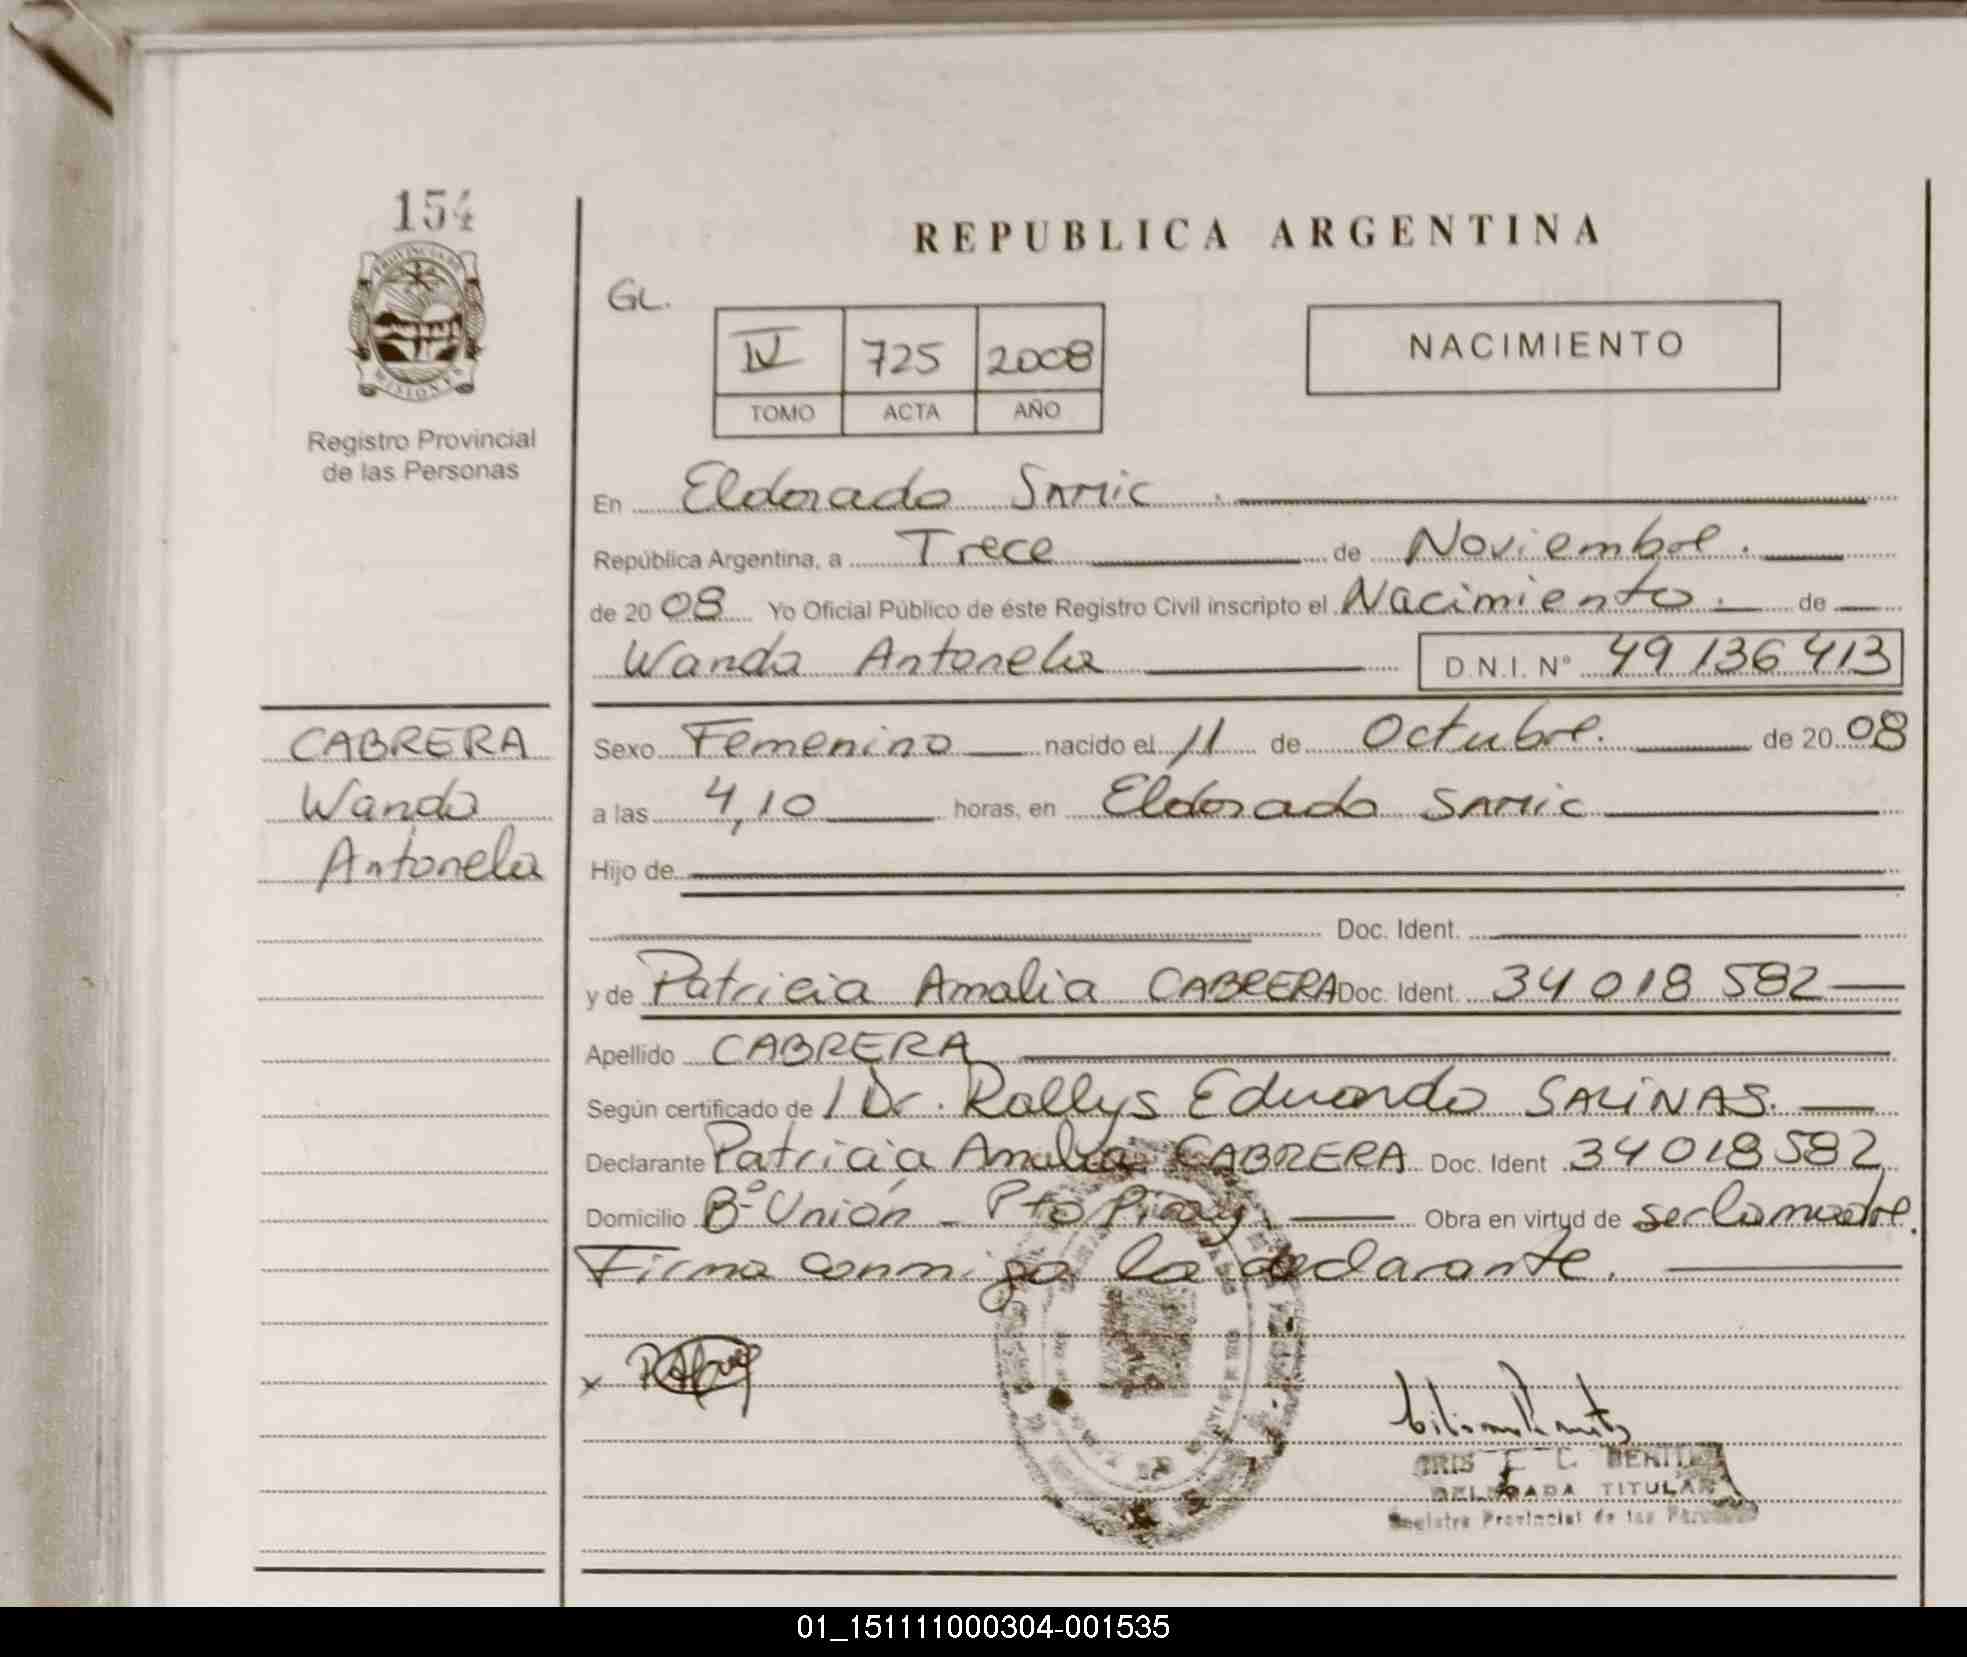 154
PROVINCIA DE
MISIONES
Registro Provincial
de las Personas
REPUBLICA ARGENTINA
GL.
IV 725 2008
TOMO ACTA AÑO
NACIMIENTO
En Eldorado SAMIC.
República Argentina, a Trece de Noviembre.
de 2008 Yo Oficial Público de éste Registro Civil inscripto el Nacimiento. de
Wanda Antonela D.N.I. Nº 49 136 413
CABRERA
Wanda
Antonela
Sexo Femenino nacido el 11 de Octubre. de 2008
a las 4,10 horas, en Eldorado SAMIC
Hijo de
Doc. Ident.
y de Patricia Amalia CABRERA Doc. Ident. 34 018 582
Apellido CABRERA
Según certificado de / Dr. Rollys Eduardo SALINAS.
Declarante Patricia Amalia CABRERA Doc. Ident 34 018 582
Domicilio Bº Unión - Pto Piray. Obra en virtud de ser la madre.
Firma conmigo la declarante.
x
BENITEZ
DELEGADA TITULAR
Registro Provincial de las Personas
01_151111000304-001535